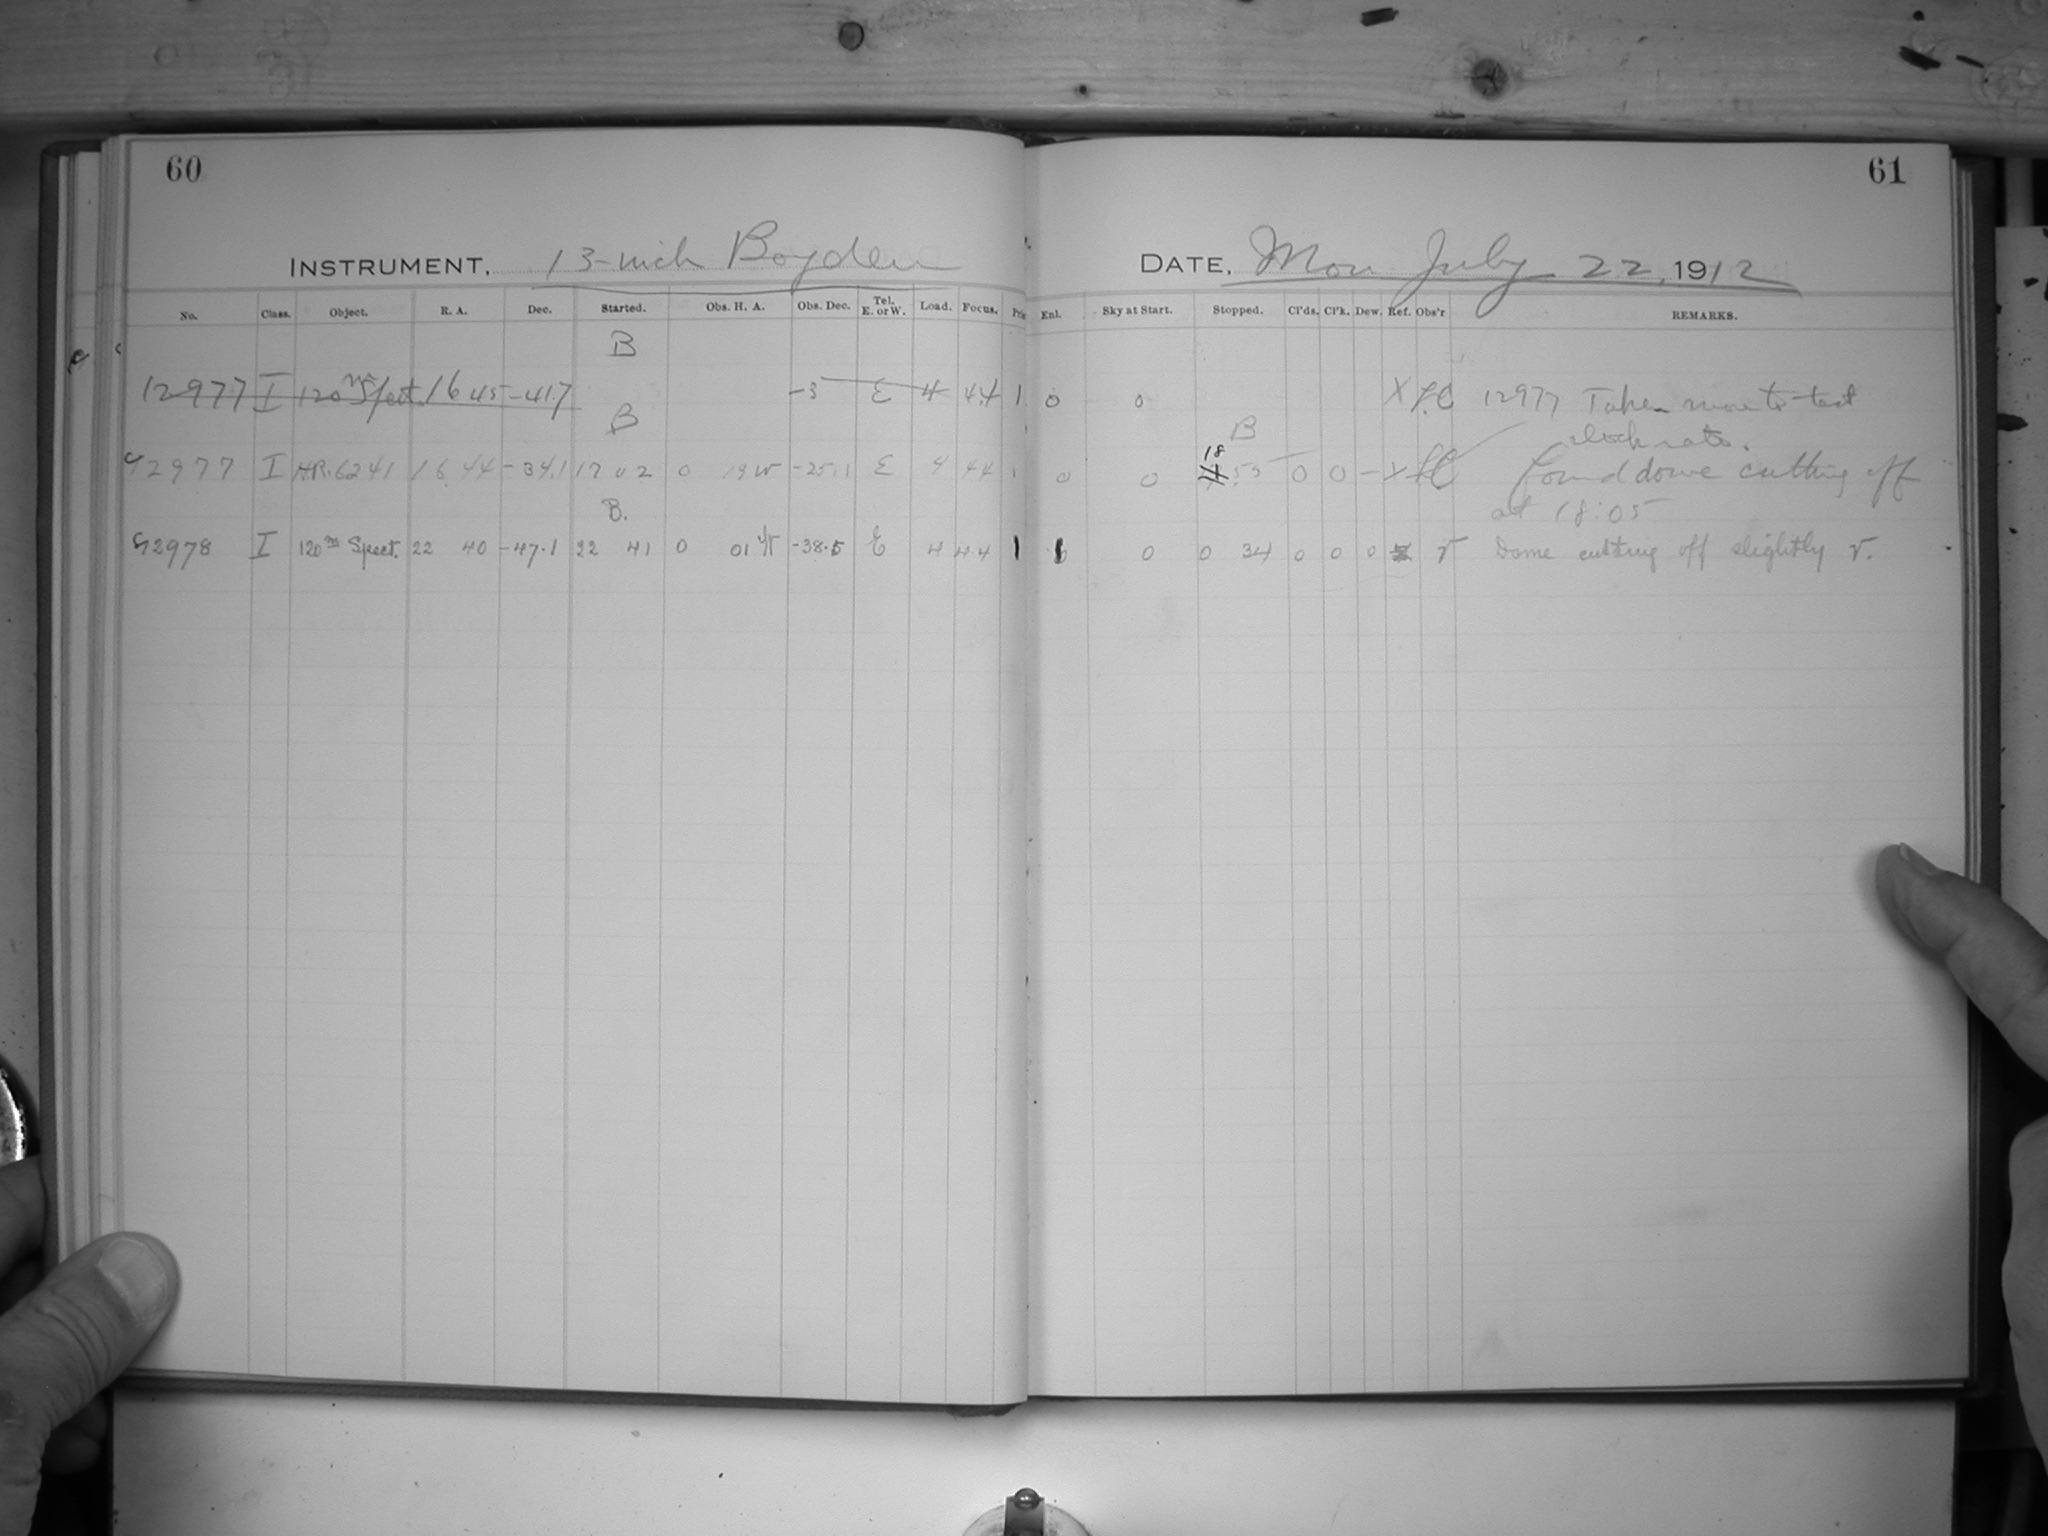 60
61
INSTRUMENT, 13-inch Boyden
DATE, Mon July 22, 1912
No. Class. Object. R. A. Dec. Started. Obs. H. A. Obs. Dec. Tel. E. or W. Load. Focus. Enl. Sky at Start. Stopped. Cl'ds. Cl'k. Dew. Ref. Obs'r REMARKS.
B
12977 I 120m Spect. 16 45 -41.7 -3 E 4 4.4 1 0 0 X 12977 Taken more to test
B B clock rate.
2977 I H.R. 6241 16 44 -34.1 17 02 0 19 W -25.1 E 4 4.4 0 0 18 55 0 0 - X Found dome cutting off
B. at 18:05
2978 I 120m Spect. 22 40 -47.1 22 41 0 01 W -38.5 E 4 4.4 1 0 0 34 0 0 0 r Dome cutting off slightly r.